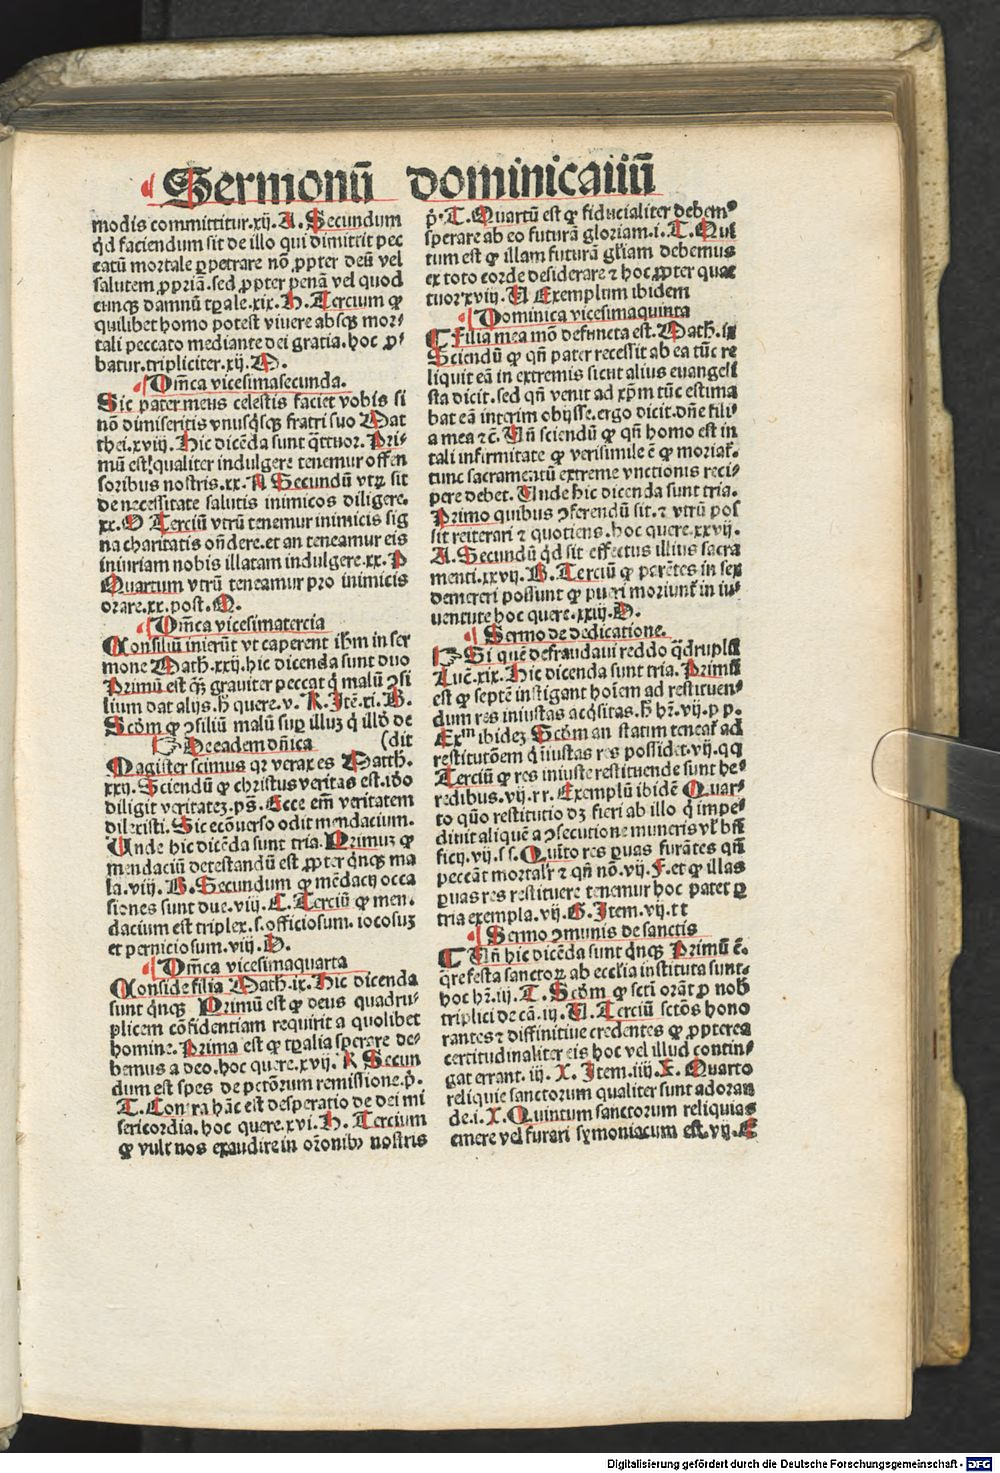 Sermonū dominicaliū
modis committitur.xij. A. Secundum
qd faciendum sit de illo qui dimittit pec
catū mortale ꝑpetrare nō ꝓpter deū vel
salutem ꝓpriā. sed ꝓpter penā vel quod
cunqꝫ damnū tꝑale.xix. H. Tercium ꝙ
quilibet homo potest viuere absqꝫ mor⸗
tali peccato mediante dei gratia. hoc ꝓ⸗
batur. tripliciter.xij.
Dm̄ca vicesimasecunda.
Sic pater meus celestis faciet vobis si
nō dimiseritis vnusqͥsqꝫ fratri suo Mat
thei.xviij. Hic dicēda sunt qͣttuor. Pri⸗
mū est qualiter indulgere tenemur offen
soribus nostris.xx. A Secundū vtꝝ sit
de necessitate salutis inimicos diligere.
xx. O Terciū vtrū tenemur inimicis sig
na charitatis ondere. et an teneamur eis
iniuriam nobis illatam indulgere.xx. P
Quartum vtrū teneamur pro inimicis
orare.xx. post. Q.
Dm̄ca vicesimatercia
Consiliū inierūt vt caperent ihm in ser
mone Math.xxij. hic dicenda sunt duo
Primū est qꝫ grauiter peccat qͥ malū ↄsi
lium dat alijs. h̄ quere. v. K. Itē.xi. B.
Scd̄m ꝙ ↄsiliū malū suꝑ illuꝫ qͥ illd̄ de
Deeadem dn̄ica (dit
Magister scimus qꝛ verax es Matth.
xxij. Sciendū ꝙ christus veritas est. iō
diligit veritateꝫ. pͣs. Ecce em̄ veritatem
dilexisti. Sic ecōuerso odit mendacium.
Unde hic dicēda sunt tria. Primuꝫ ꝙ
mendaciū detestandū est ꝓpter qͥnqꝫ ma
la. viij. B. Secundum ꝙ mēdacij occa
siones sunt due. viij. C. Terciū ꝙ men.
dacium est triplex. s. officiosum. iocosuꝫ
et perniciosum. viij. D.
Dm̄ca vicesimaquarta
Confide filia Math. ix. Hic dicenda
sunt qͥnqꝫ Primū est ꝙ deus quadru⸗
plicem cōfidentiam requirit a quolibet
homine. Prima est ꝙ tꝑalia sperare de⸗
bemus a deo. hoc quere.xvij. K Secun
dum est spes de pctōrum remissione. p̄.
T. Contra hāc est desperatio de dei mi
sericordia. hoc quere.xvi. H. Tercium
ꝙ vult nos exaudire in or̄onibꝫ nostris
p̄. T. Quartū est ꝙ fiducialiter debemꝰ
sperare ab eo futurā gloriam. i. T. Quī
tum est ꝙ illam futurā gl̄iam debemus
ex toto corde desiderare ⁊ hoc ꝓpter quat
tuor xviij. U Exemplum ibidem
Dominica vicesimaquinta
Filia mea mō defuncta est. Math. ix
Sciendū ꝙ qn̄ pater recessit ab ea tūc re
liquit eā in extremis sicut alius euangeli
sta dicit. sed qn̄ venit ad xp̄m tūc estima
bat eā interim obijsse. ergo dicit. dn̄e fili⸗
a mea ⁊c̄. Un̄ sciendū ꝙ qn̄ homo est in
tali infirmitate ꝙ verisimile ē ꝙ moriat̄.
tunc sacramentū extreme vnctionis reci⸗
pere debet. Unde hic dicenda sunt tria.
Primo quibus ↄferendū sit. ⁊ vtrū pos
sit reiterari ⁊ quotiens. hoc quere.xxvij.
A. Secundū qͥd sit effectus illius sacra
menti.xxvij. B. Terciū ꝙ parētes in sex
demereri possunt ꝙ pueri moriunt̄ in iu⸗
uentute hoc quere.xxiij. D.
Sermo de dedicatione.
Si quē defraudaui reddo qͣdruplū
Luc̄.xix. Hic dicenda sunt tria. Primū
est ꝙ septē instigant hoīem ad restituen⸗
dum res iniustas acqͥsitas. h̄ hꝫ. vij. p p.
Exᵐ ibideꝫ Scd̄m an statim teneat̄ ad
restitutōem qͥ iniustas res possidet. vij. qq
Terciū ꝙ res iniuste restituende sunt he⸗
redibus. vij. rr. Exemplū ibidē Quar⸗
to qūo restitutio dꝫ fieri ab illo qͥ impe⸗
diuit aliquē a ↄsecutione muneris vl̄ bn̄
ficij. vij. ss. Quīto res ꝑuas furātes qn̄
peccāt mortalr̄ ⁊ qn̄ nō. vij. F. et ꝙ illas
ꝑuas res restituere tenemur hoc patet ꝑ
tria exempla. vij. G. Item. vij. tt
Sermo ↄmunis de sanctis
Un̄ hic dicēda sunt qͥnqꝫ Primū ē.
qͣre festa sanctoꝝ ab eccl̄ia instituta sunt.
hoc hꝫ. iij. T. Scd̄m ꝙ scti orāt ꝓ nob̄
triplici de cā. iij. U. Terciū sctōs hono
rantes ⁊ diffinitiue credentes ꝙ ꝓpterea
certitudinaliter eis hoc vel illud contin⸗
gat errant. iij. X. Item. iiij. X. Quarto
reliquie sanctorum qualiter sunt adoran
de. i. X. Quintum sanctorum reliquias
emere vel furari symoniacum est. vij. E
Digitalisierung gefördert durch die Deutsche Forschungsgemeinschaft - DFG